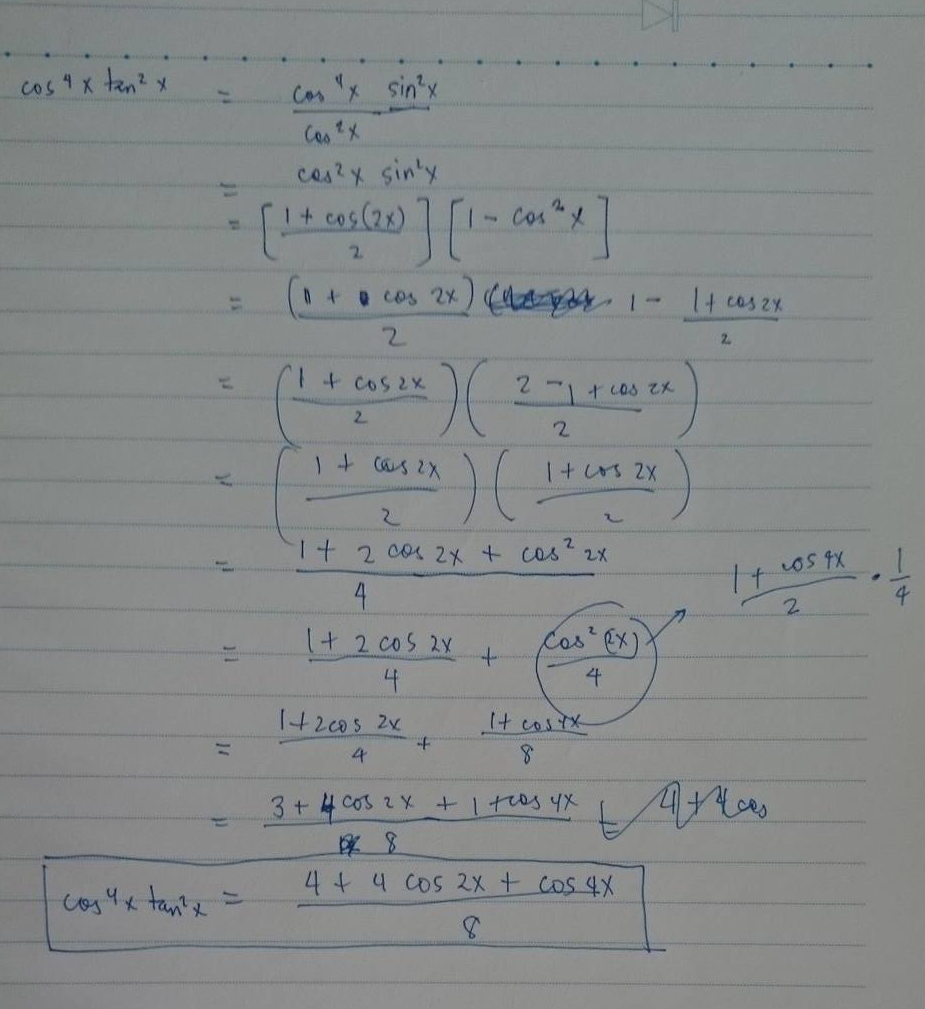 cos⁴x tan²x = cos⁴x sin²x / cos²x
= cos²x sin²x
= [1 + cos(2x) / 2] [1 - cos²x]
= (1 + cos 2x) / 2 1 - 1 + cos 2x / 2
= (1 + cos 2x / 2) (2 - 1 + cos 2x / 2)
= (1 + cos 2x / 2) (1 + cos 2x / 2)
= 1 + 2 cos 2x + cos² 2x / 4
1 + cos 4x / 2 · 1/4
= 1 + 2 cos 2x / 4 + cos² (2x) / 4
= 1 + 2cos 2x / 4 + 1 + cos 4x / 8
= 3 + 4 cos 2x + 1 + cos 4x / 8 = 4 + 4 cos
cos⁴x tan²x = 4 + 4 cos 2x + cos 4x / 8